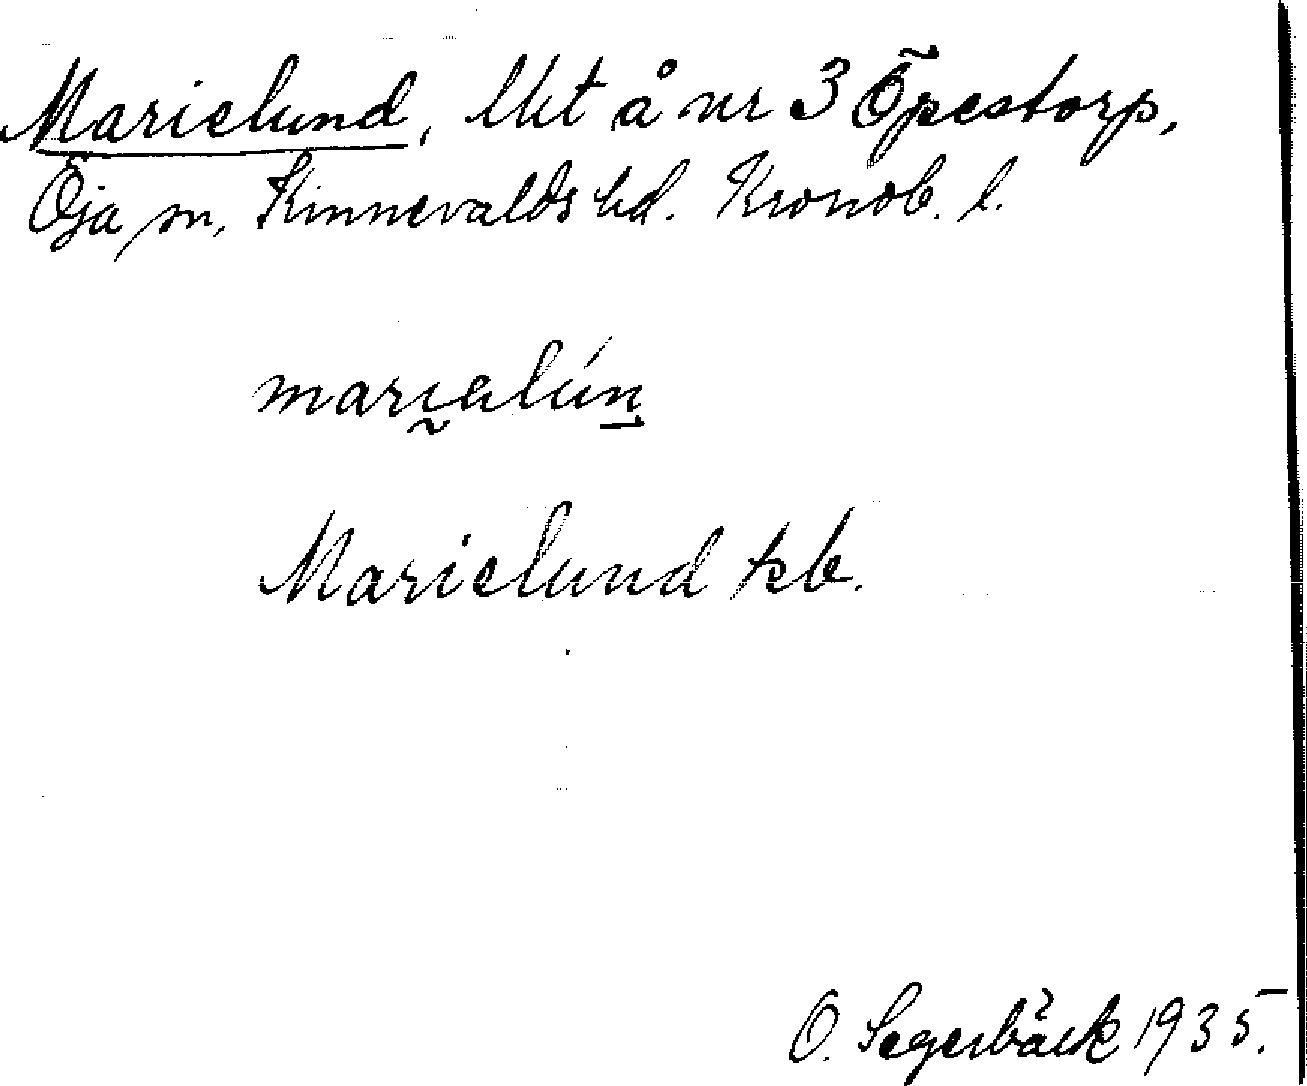 Marielund, lht å nr 3 Öpestorp,
Öja sn, Kinnevalds hd. Kronob. l.
marialún
Marielund kb.
O. Segerbäck 1935.